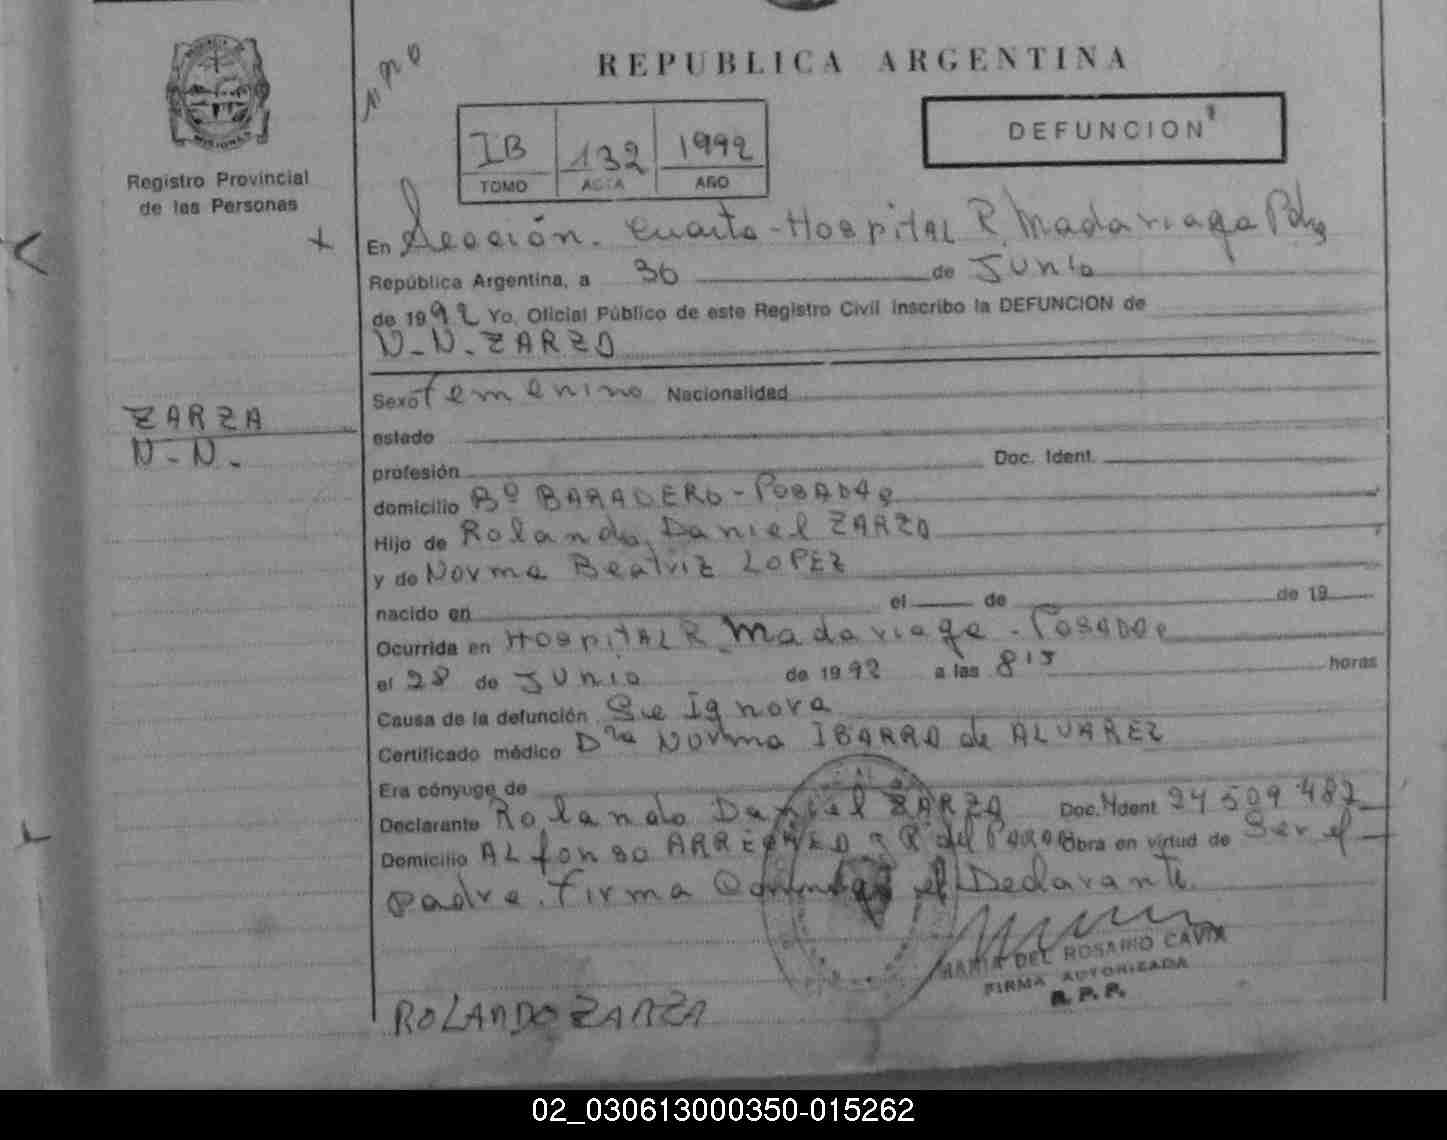 REPUBLICA ARGENTINA
DEFUNCION
IB 132 1992
TOMO ACTA AÑO
Registro Provincial
de las Personas
En Sección Cuarta - Hospital R. Madariaga Pdas
República Argentina, a 30 de Junio
de 1992 Yo, Oficial Público de este Registro Civil inscribo la DEFUNCION de
N-N-ZARZA
ZARZA
N-N-
Sexo Femenino Nacionalidad
estado
profesión Doc. Ident.
domicilio Bº BARADERO - POSADAS
Hijo de Rolando Daniel ZARZA
y de Norma Beatriz LOPEZ
nacido en el de de 19
Ocurrida en HospitAL R. Madariaga - POSADAS
el 28 de Junio de 1992 a las 8'15 horas
Causa de la defunción Se Ignora
Certificado médico Dra Norma IBARRA de ALVAREZ
Era cónyuge de
Declarante Rolando Daniel ZARZA Doc. Ident 24509487
Domicilio ALfonso del Obra en virtud de Ser el
padre. Firma el Declarante.
MARIA DEL ROSARIO CAVIA
FIRMA AUTORIZADA
R. P. P.
ROLANDO ZARZA
02_030613000350-015262